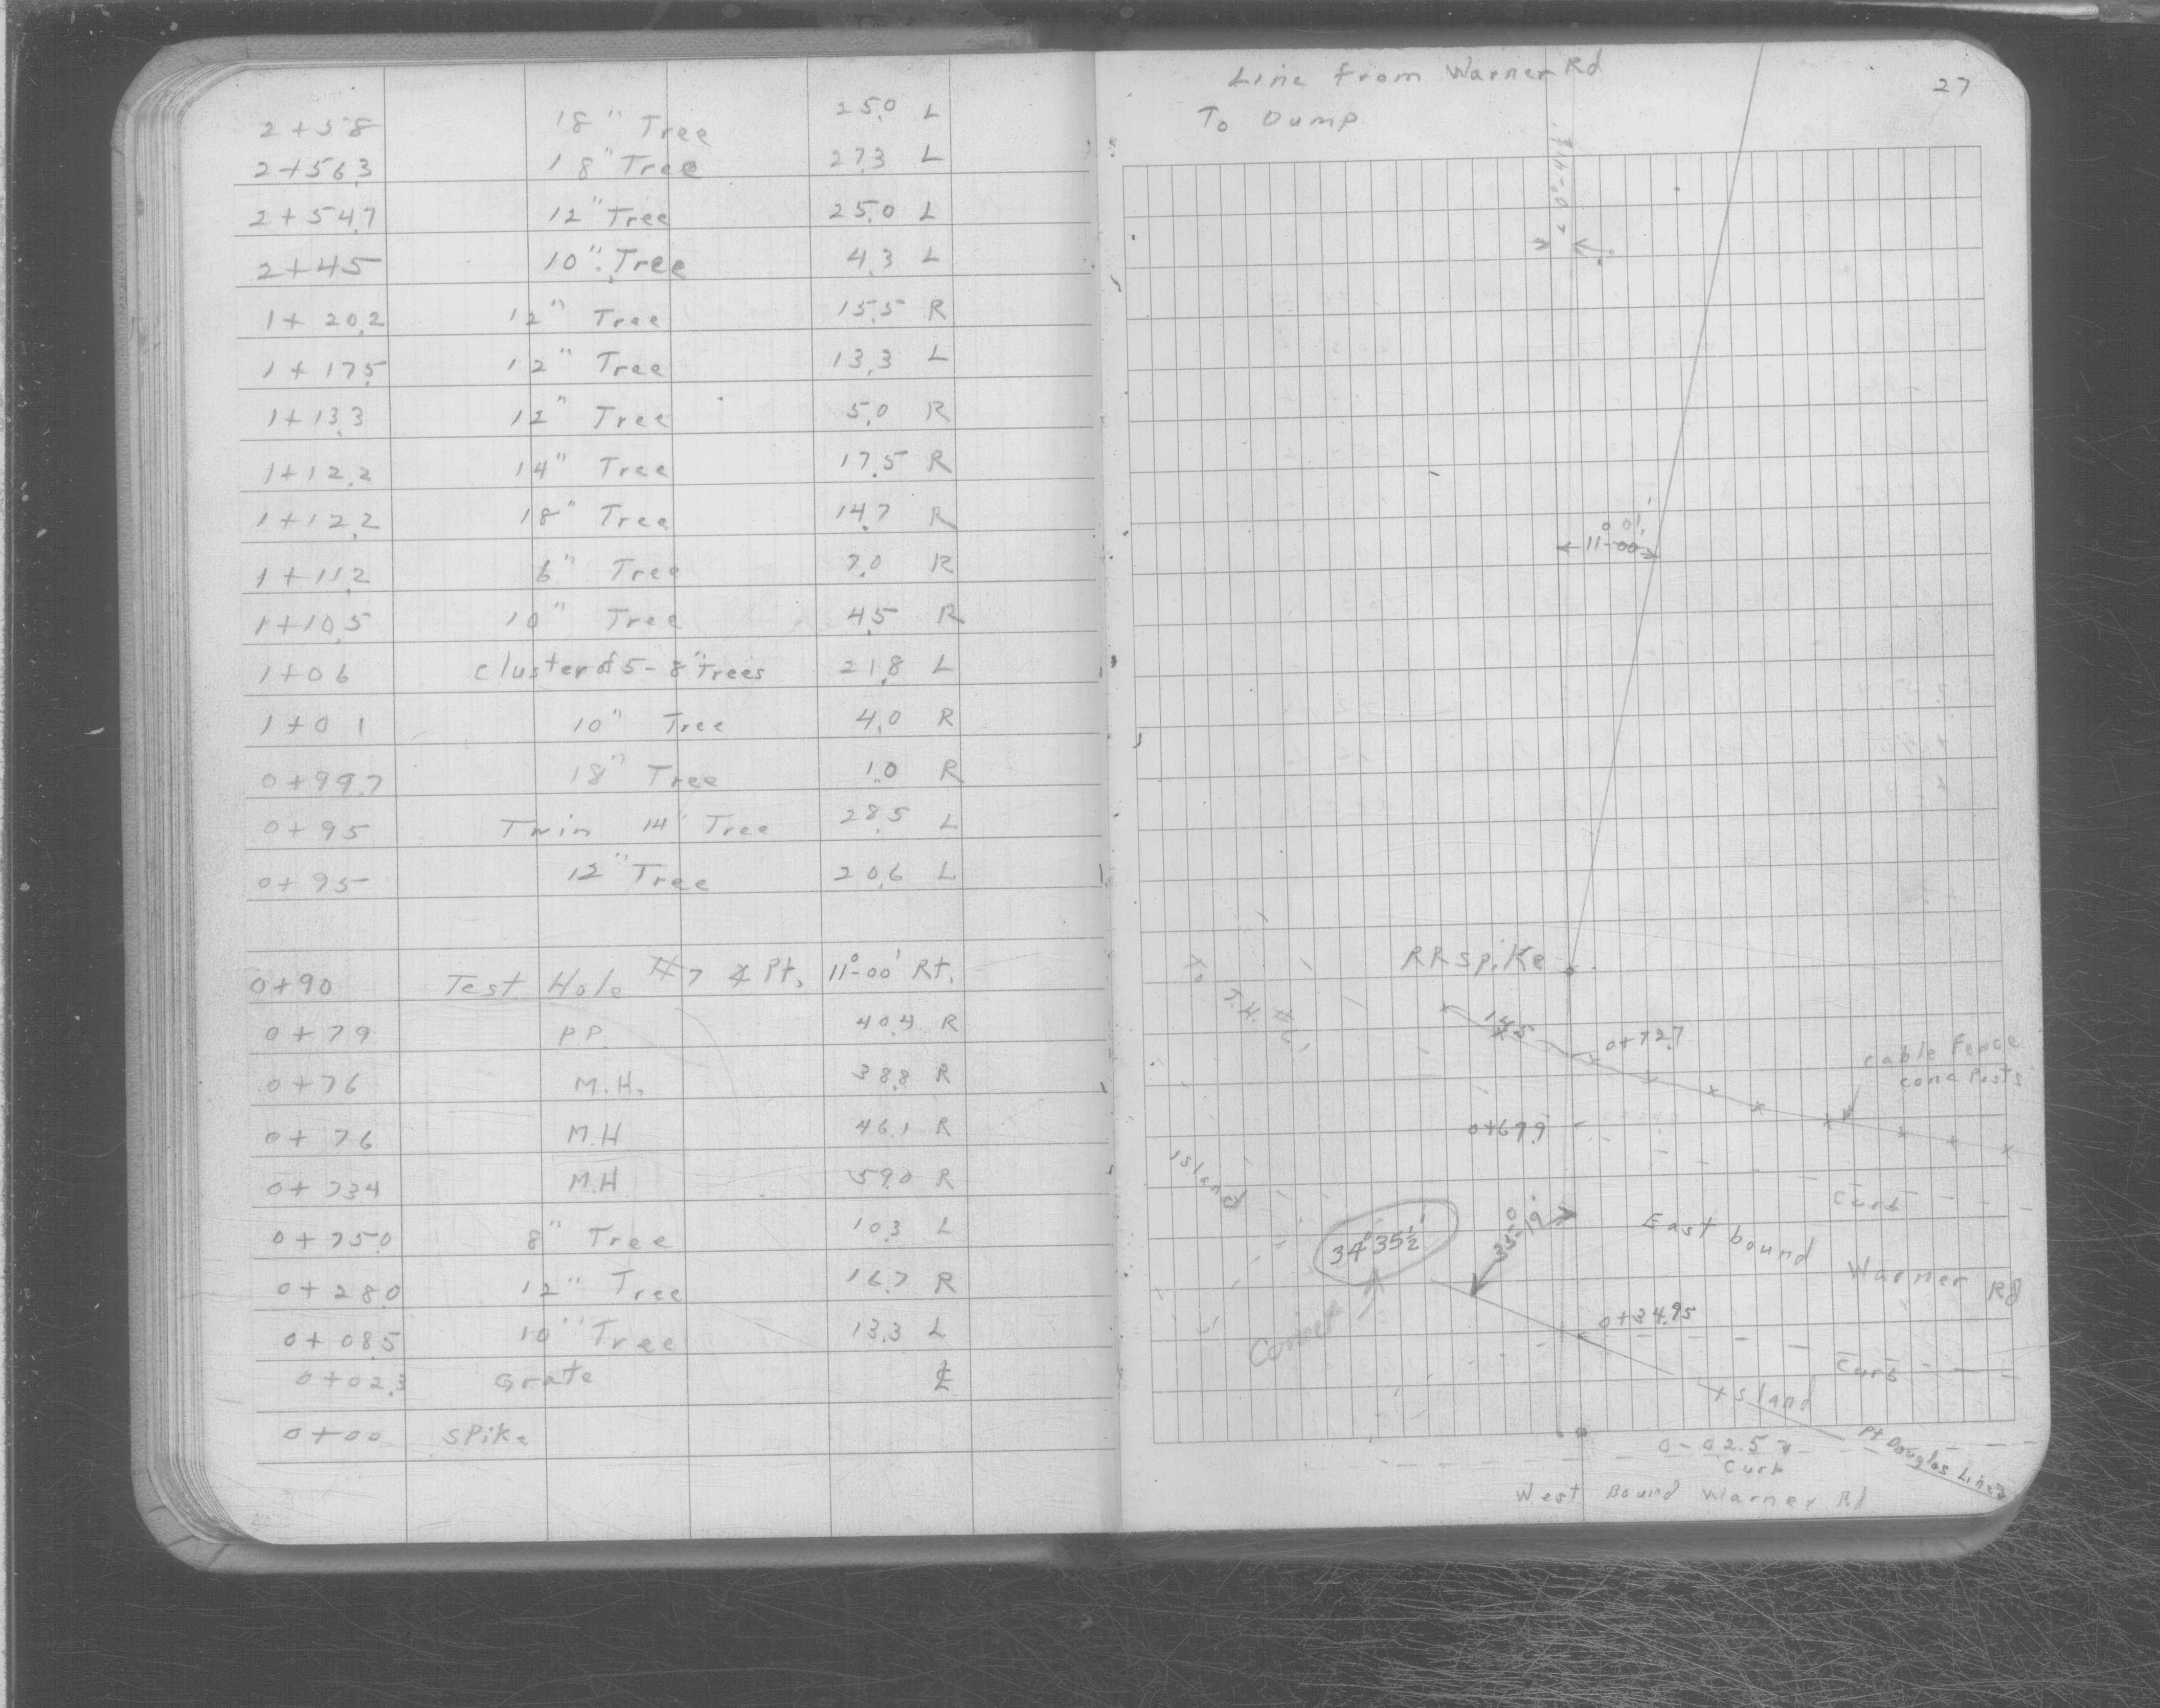 2+58 18" Tree 25.0 L
2+56.3 18" Tree 27.3 L
2+54.7 12" Tree 25.0 L
2+45 10" Tree 4.3 L
1+20.2 12" Tree 15.5 R
1+17.5 12" Tree 13.3 L
1+13.3 12" Tree 5.0 R
1+12.2 14" Tree 17.5 R
1+12.2 18" Tree 14.7 R
1+11.2 6" Tree 7.0 R
1+10.5 10" Tree 4.5 R
1+06 Cluster of 5-8" Trees 21.8 L
1+01 10" Tree 4.0 R
0+99.7 18" Tree 1.0 R
0+95 Twin 14" Tree 28.5 L
0+95 12" Tree 20.6 L
0+90 Test Hole #7 ∡ Pt. 11°-00' Rt.
0+79 P.P. 40.4 R
0+76 M.H. 38.8 R
0+76 M.H 46.1 R
0+73.4 M.H 59.0 R
0+75.0 8" Tree 10.3 L
0+28.0 12" Tree 16.7 R
0+08.5 10" Tree 13.3 L
0+02.3 Grate ℄
0+00 Spike
Line from Warner Rd
To Dump
27
01'
11°-00'
RR Spike
To T.H. #6
14.5
0+72.7
Cable Fence
conc Posts
0+69.9
Island
Curb
34°35½'
35°-19'
East bound Warner Rd
Corner
0+34.95
Curb
Island
Pt Douglas Line
0-02.5
Curb
West Bound Warner Rd